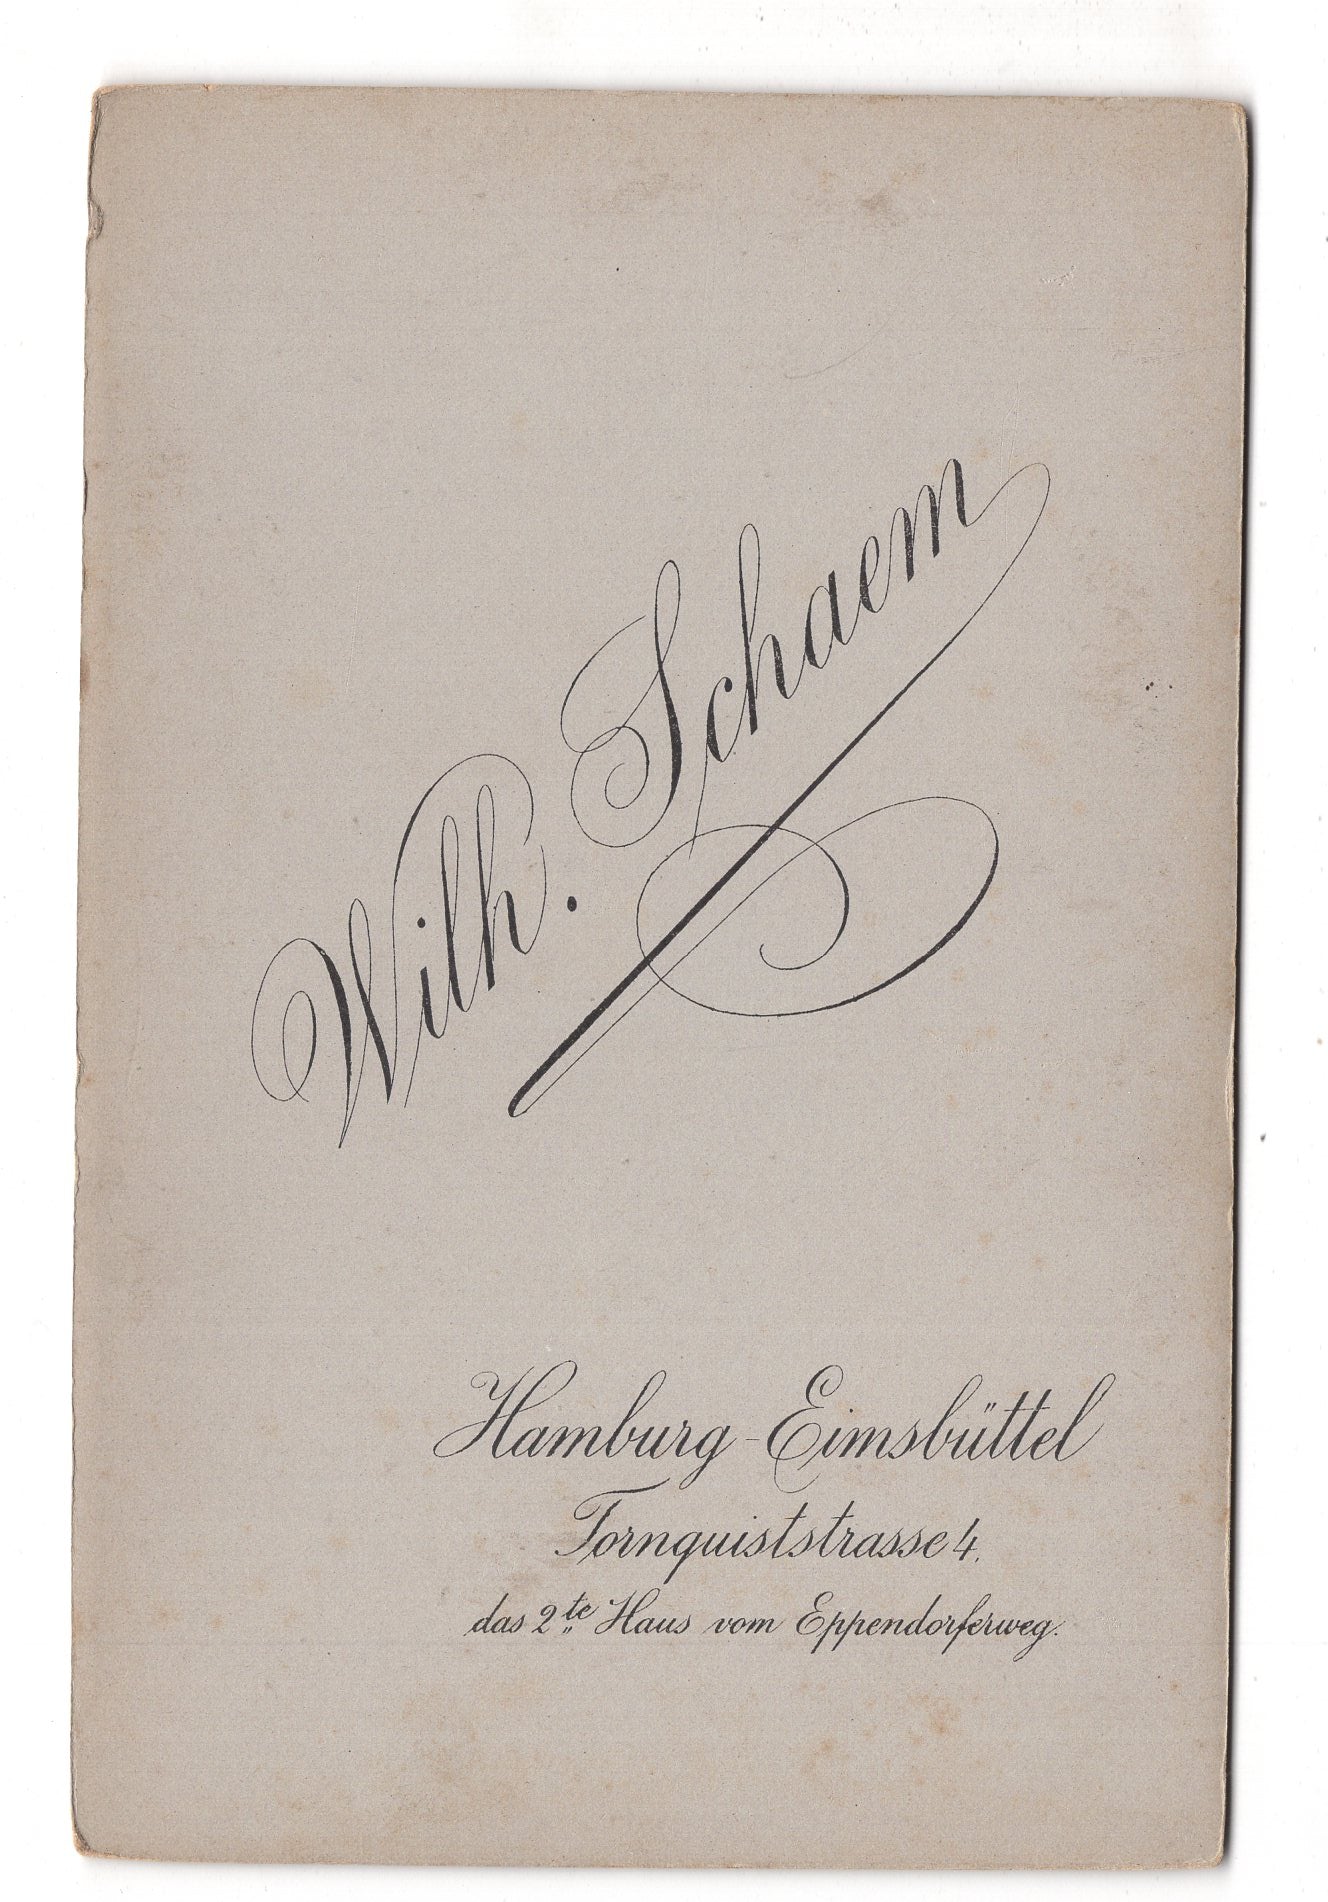 Wilh. Schaem
Hamburg-Eimsbüttel
Tornquiststrasse 4.
das 2te Haus vom Eppendorferweg.